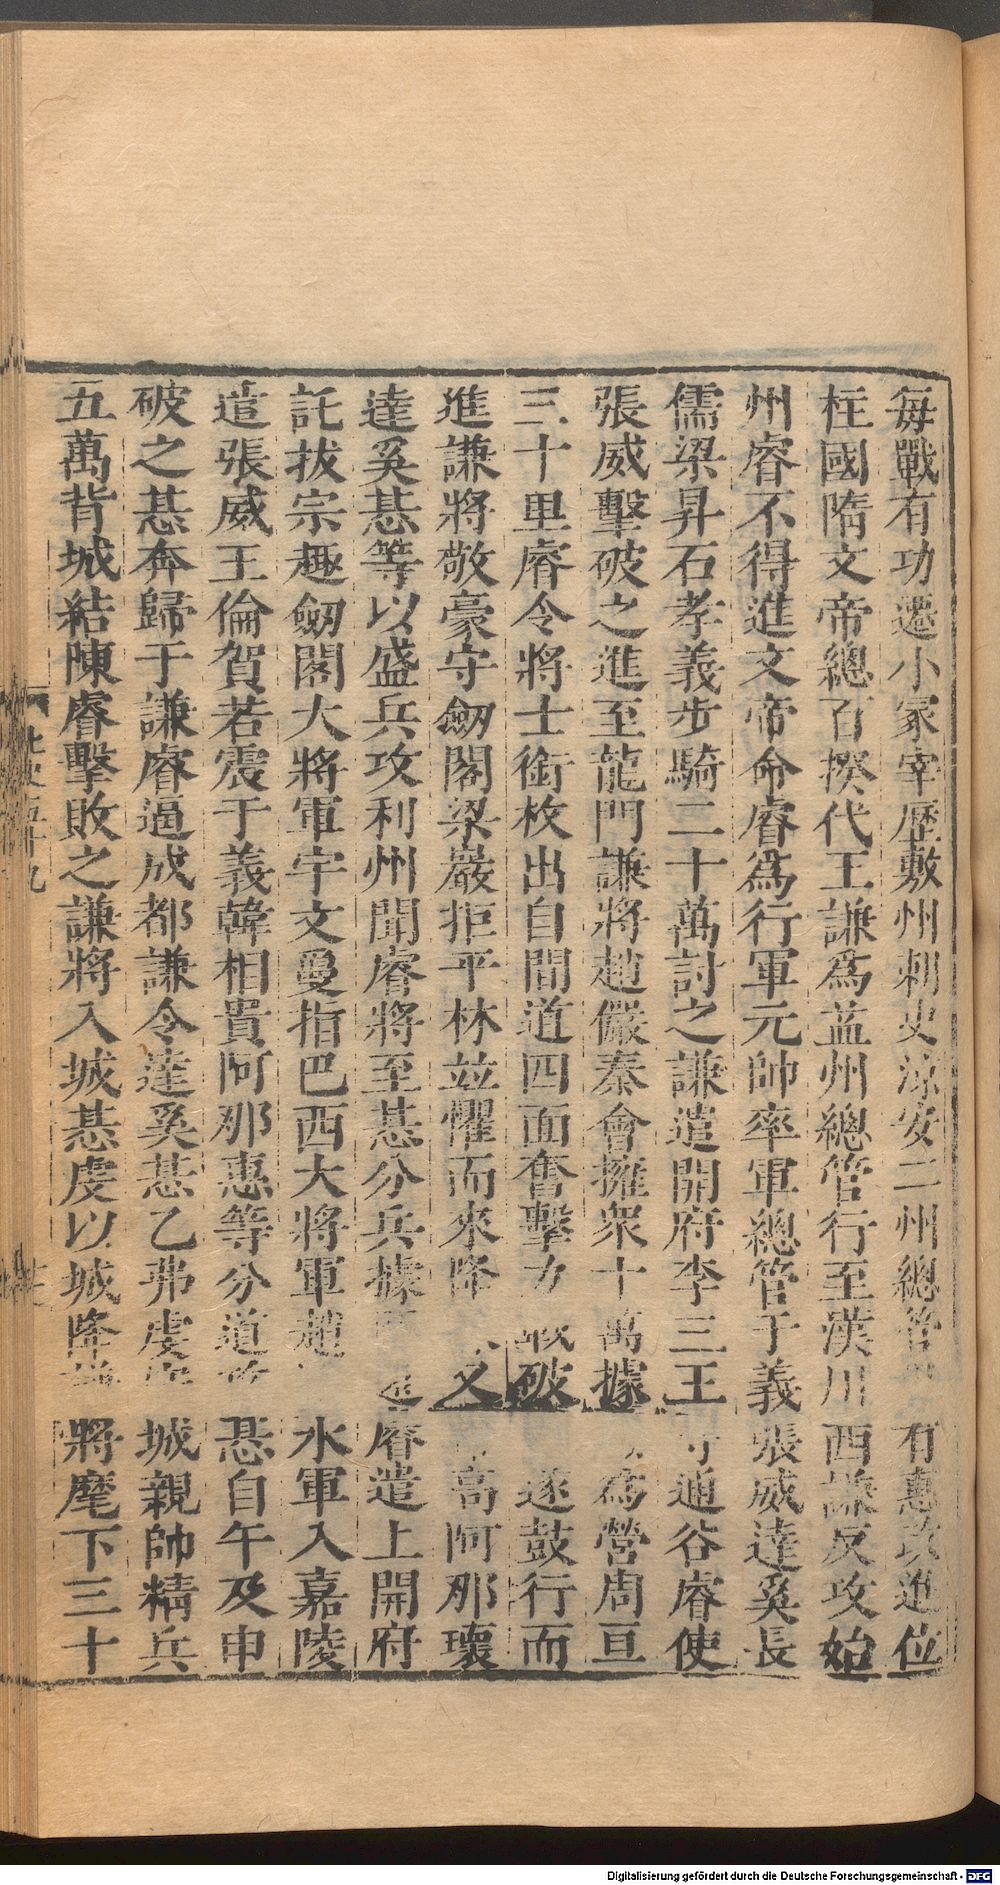 每戰有功遷小冢宰歷敷州刺史涼安二州總管有惠政進位
柱國隋文帝總百揆代王謙爲益州總管行至漢川西謙反攻始
州睿不得進文帝命睿爲行軍元帥率軍總管于義張威達奚長
儒梁昇石孝義步騎二十萬討之謙遣開府李三王通谷睿使
張威擊破之進至龍門謙將趙儼秦會擁衆十萬據爲營周亘
三十里睿令將士銜枚出自間道四面奮擊力戰破遂鼓行而
進謙將敬豪守劔閣梁巖拒平林竝懼而來降又高阿那瓌
達奚惎等以盛兵攻利州聞睿將至惎分兵據睿遣上開府
託拔宗趣劔閣大將軍宇文夐指巴西大將軍趙水軍入嘉陵
遣張威王倫賀若震于義韓相貴阿那惠等分道惎自午及申
破之惎奔歸于謙睿逼成都謙令達奚惎乙弗虔城親帥精兵
五萬背城結陳睿擊敗之謙將入城惎虔以城降將麾下三十
北史五十九
Digitalisierung gefördert durch die Deutsche Forschungsgemeinschaft - DFG